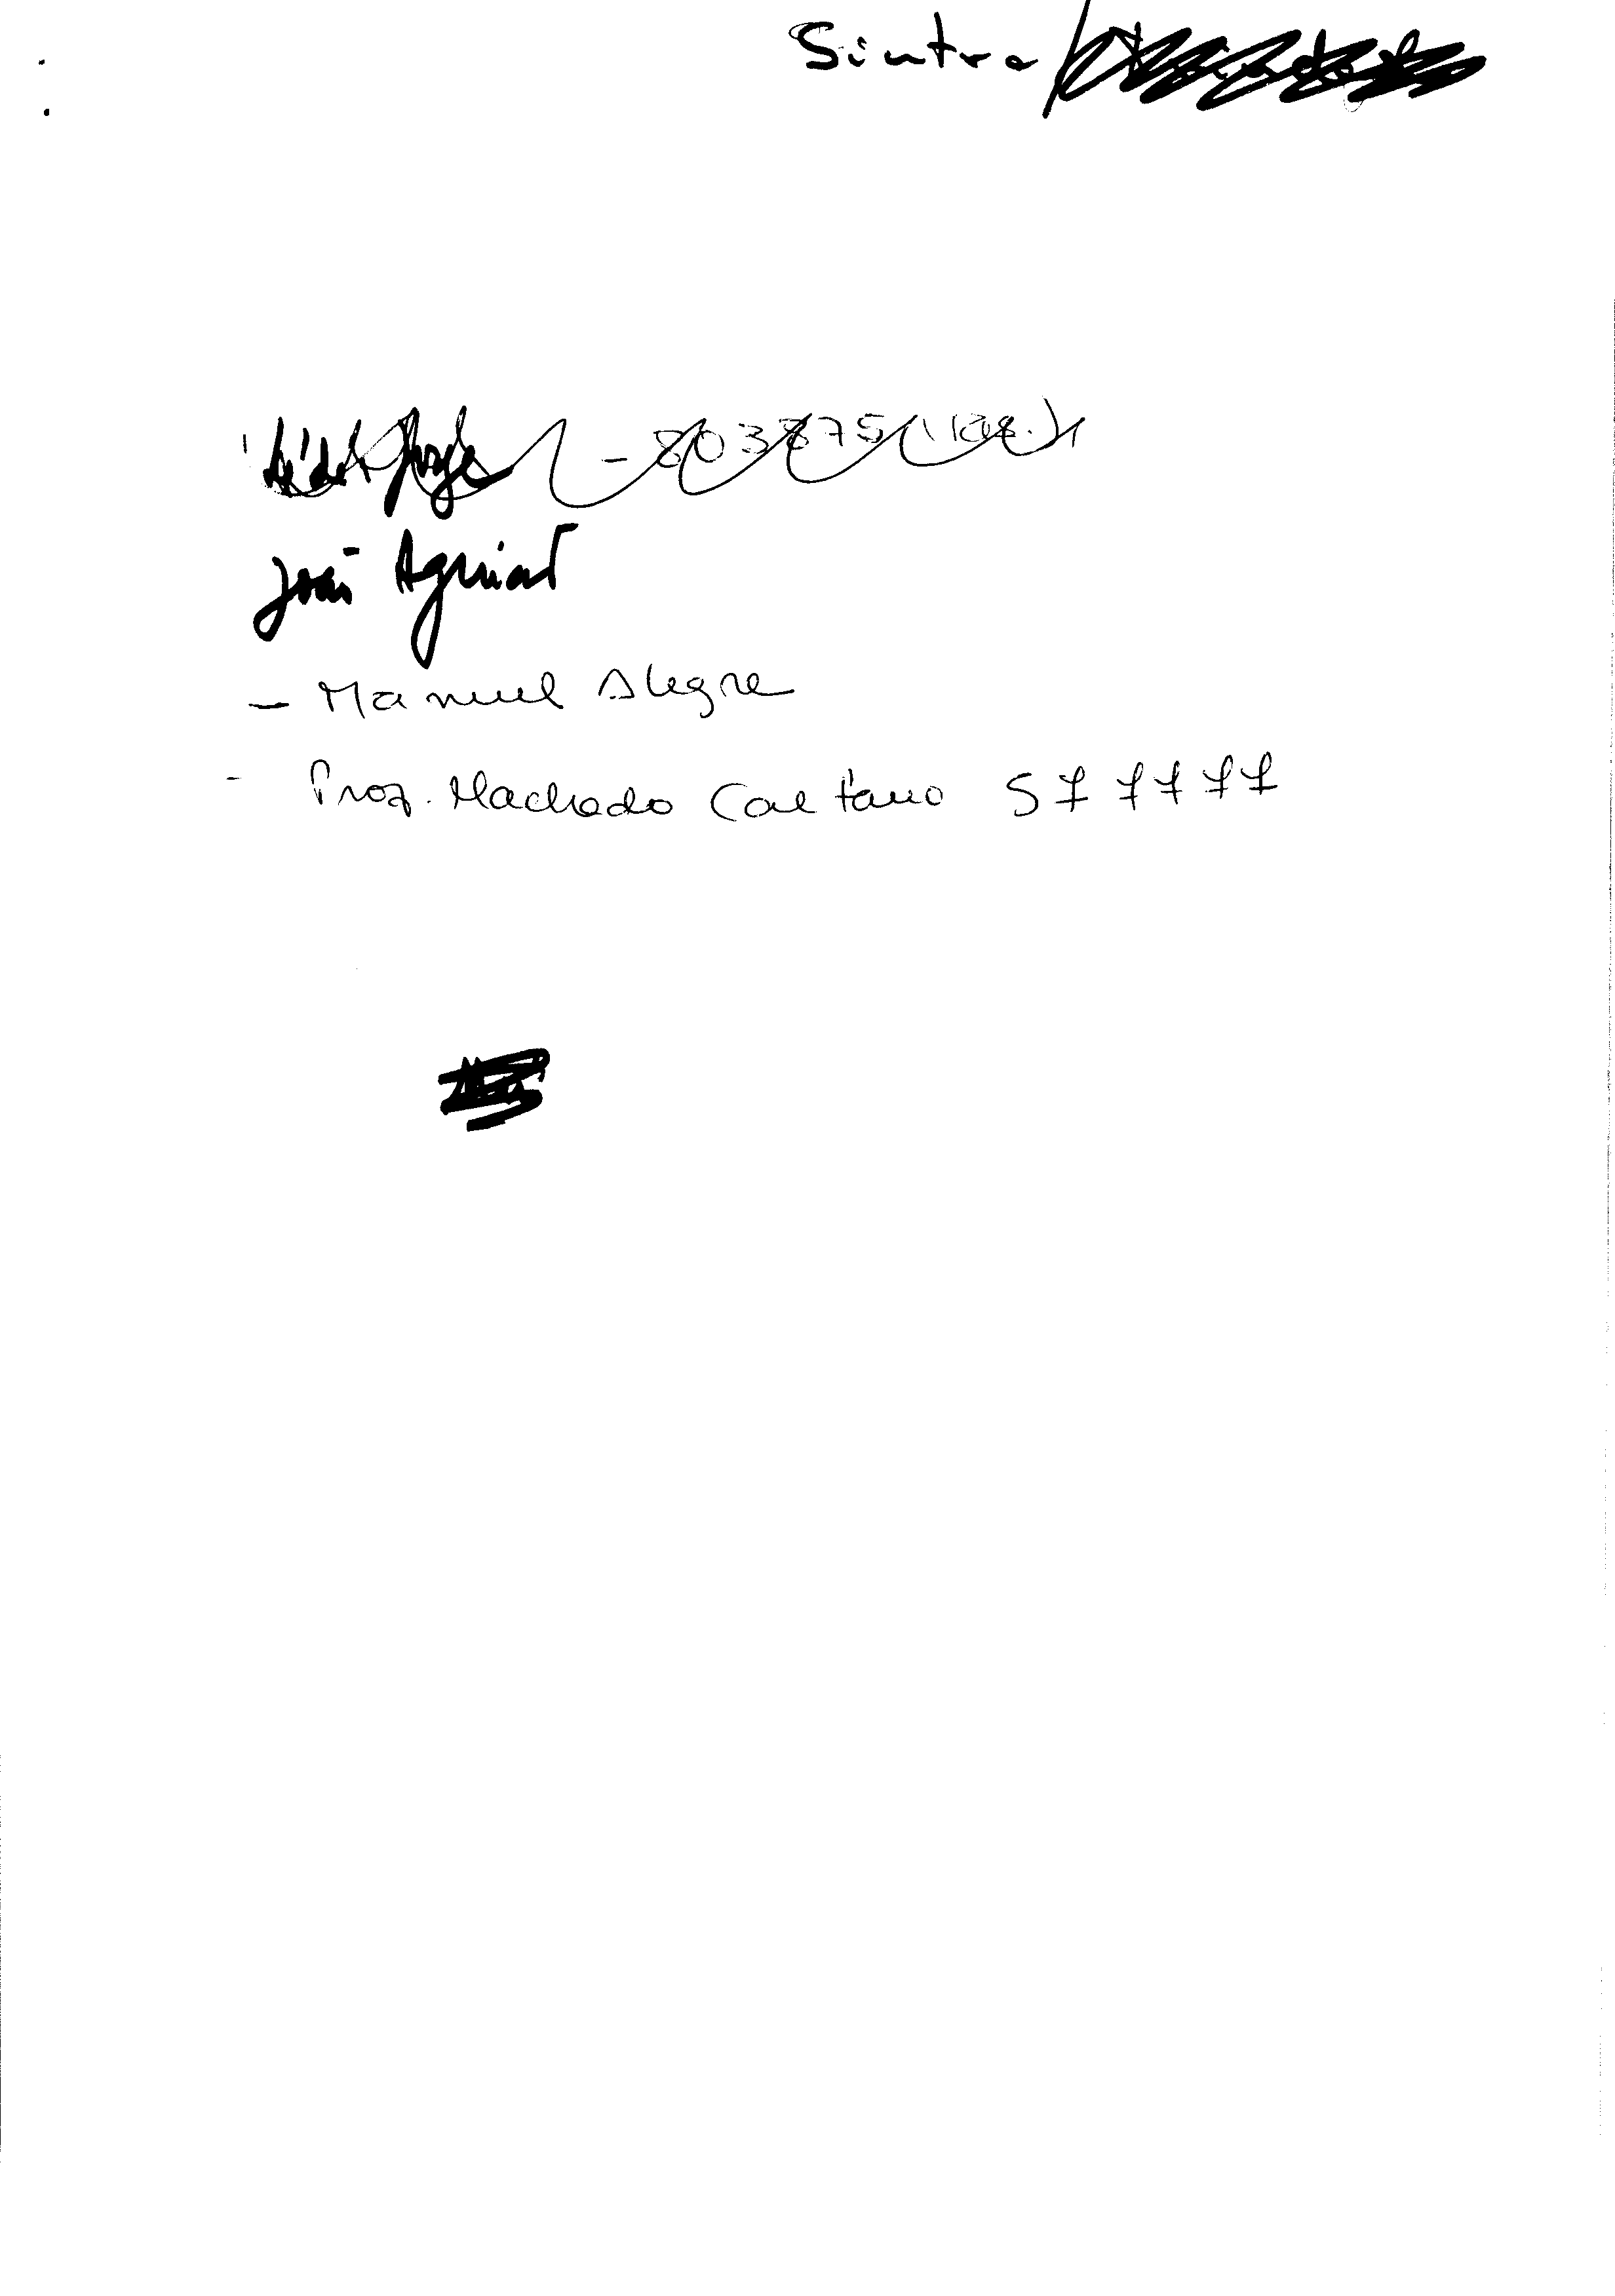 Sintra /
Lídia Jorge - 803875 (
João Aguiar
- Manuel Alegre
- Prof. Machado Caetano 577777